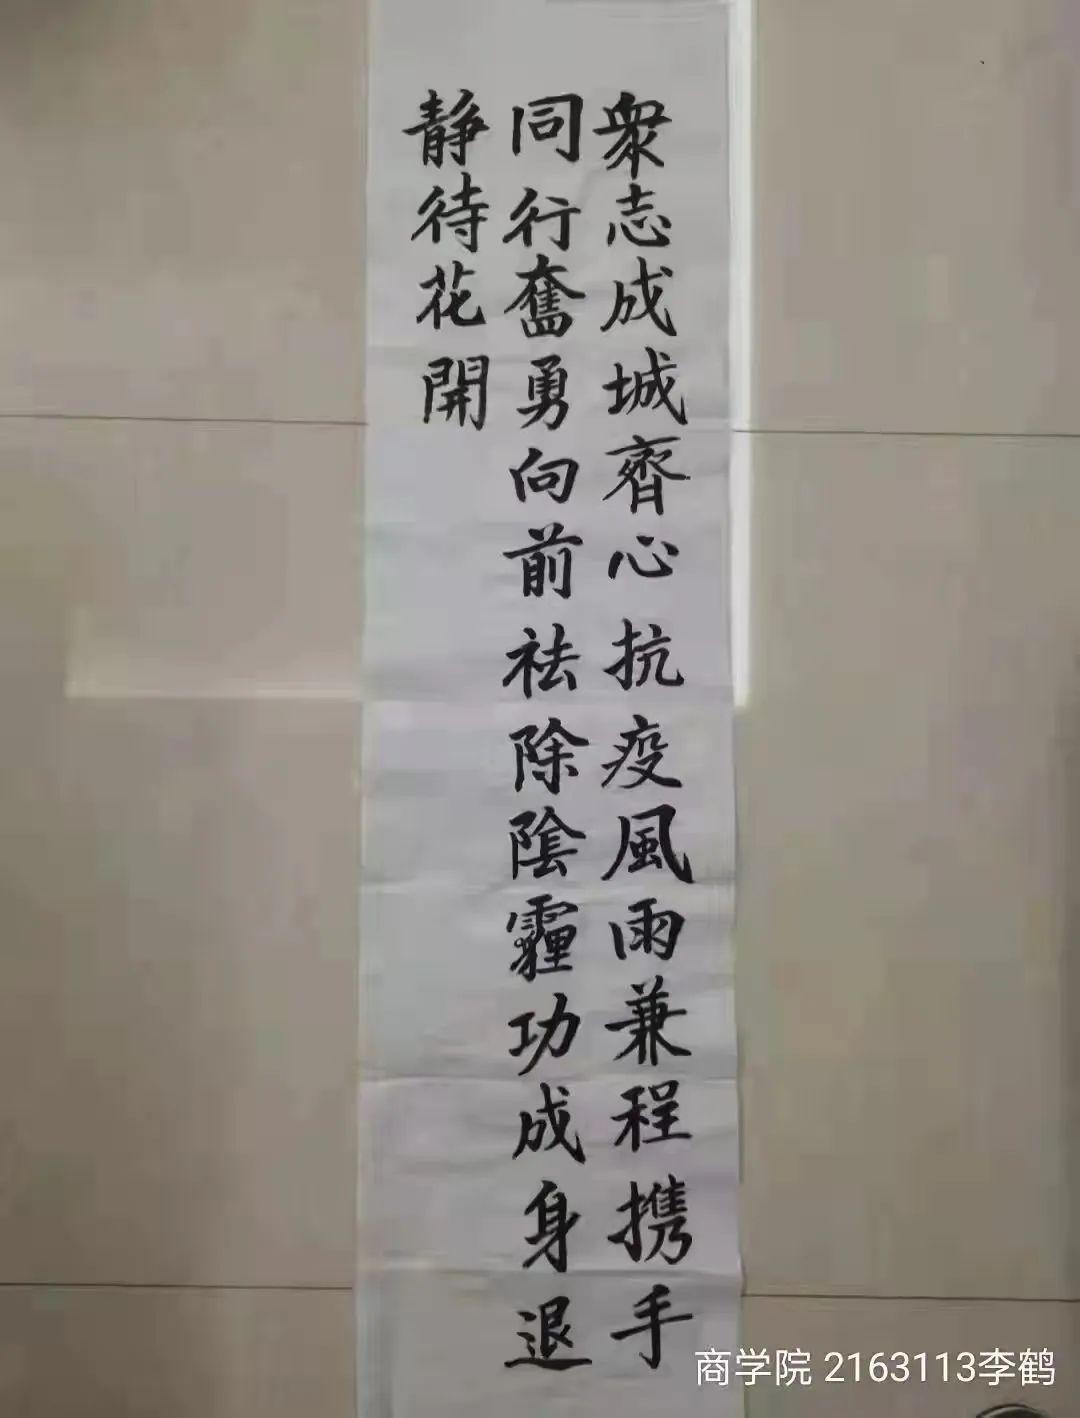 衆志成城齊心抗疫風雨兼程携手
同行奮勇向前祛除陰霾功成身退
静待花開
商学院 2163113李鹤